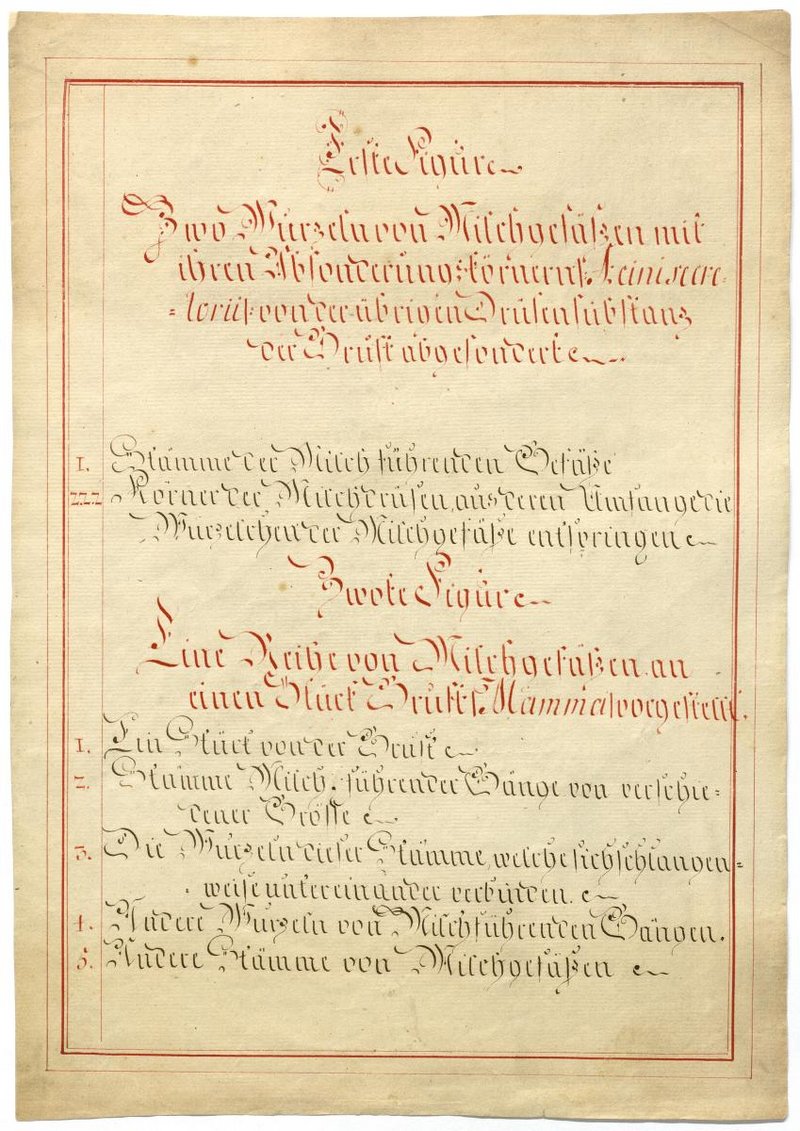 Erste Figur
Zwo Wurzeln von Milchgefäßen mit
ihren Absonderungskörnern ſ. Acini secre-
= torii ſ von der übrigen Drüsensubstanz
der Brust abgesondert
1. Stämme der Milch führenden Gefäße
2.2.2 Körner der Milchdrüsen, aus deren Umfange die
Würzelchen der Milchgefäße entspringen
Zwote Figur
Eine Reihe von Milchgefäßen an
einen Stück Brust ſ. Mamma ſ vorgestellt.
1. Ein Stück von der Brust
2. Stämme Milch führender Gänge von verschie=
dener Grösse
3. Die Wurzeln dieser Stämme, welche sich schlangen=
= weise unter einander verbinden.
4. Andere Wurzeln von Milchführenden Gängen.
5. Andere Stämme von Milchgefäßen